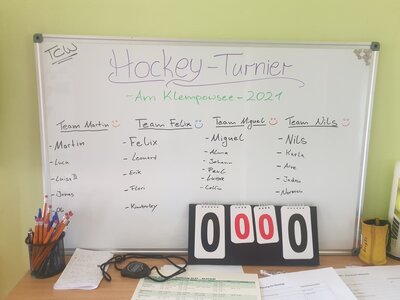 TCW
Hockey-Turnier
- Am Klempowsee - 2021
Team Martin
- Martin
- Luca
- Jonas
Team Felix
- Felix
- Leonard
- Erik
- Flori
- Kimberley
Team Miguel
- Miguel
- Alma
- Johann
- Paul
- Colin
Team Nils
- Nils
- Karla
- Arne
0 0 0 0